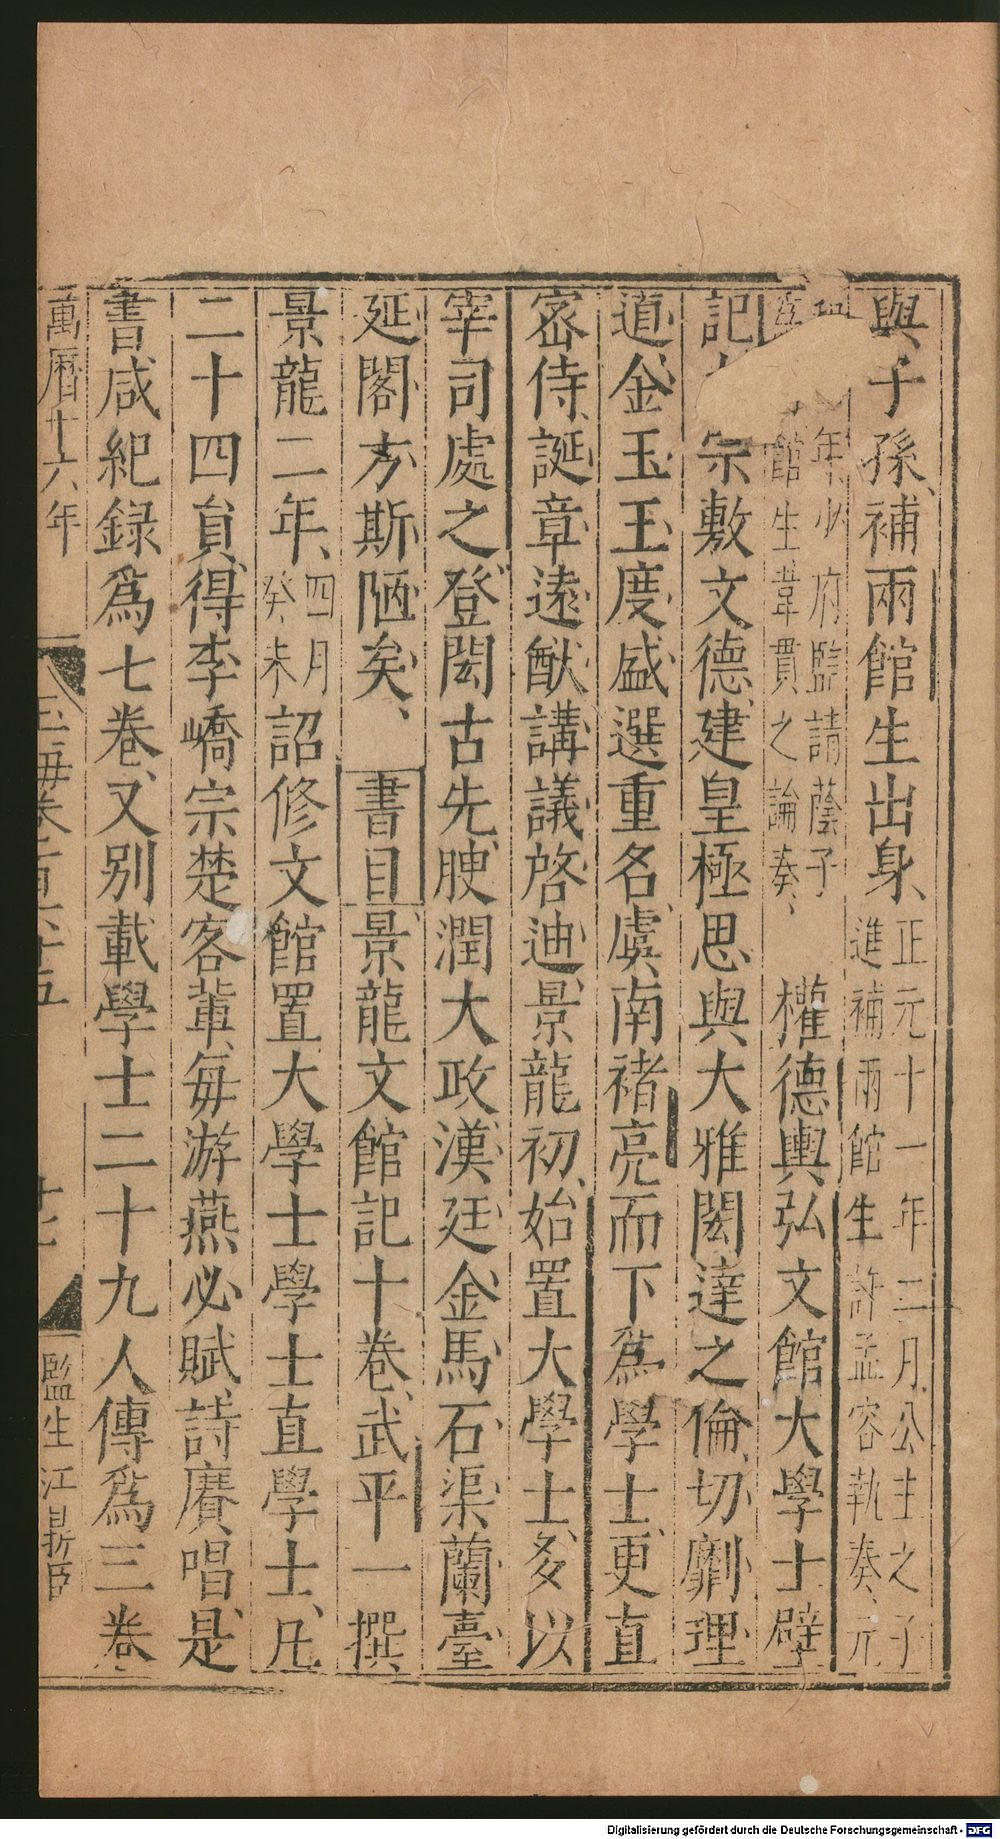 與子孫補兩館生出身、正元十一年二月公主之子進補兩館生許孟容執奏、元
年少府監請蔭子館生韋貫之論奏、 權德輿弘文館大學士壁
記 宗敷文德、建皇極、思與大雅閎達之倫、切劘理
道、金玉王度、盛選重名、虞南褚亮而下爲學士、更直
宻侍、誕章遠猷、講議啓迪、景龍初、始置大學士、多以
宰司處之、登閎古先、腴潤大政、漢廷金馬石渠蘭臺
延閣、方斯陋矣、 書目景龍文館記十卷、武平一撰
景龍二年、四月癸未詔修文館置大學士學士直學士、凡
二十四員、得李嶠宗楚客輩、每游燕必賦詩賡唱、是
書咸紀録爲七卷、又别載學士二十九人傳爲三卷
萬曆十六年 玉海卷一百六十五 十七 監生江
Digitalisierung gefördert durch die Deutsche Forschungsgemeinschaft - DFG